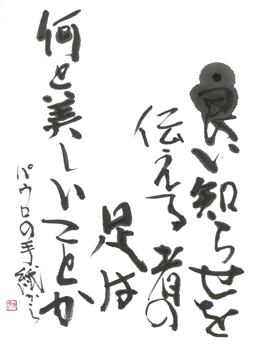 良い知らせを
伝える者の
足は
何と美しいことか
パウロの手紙から